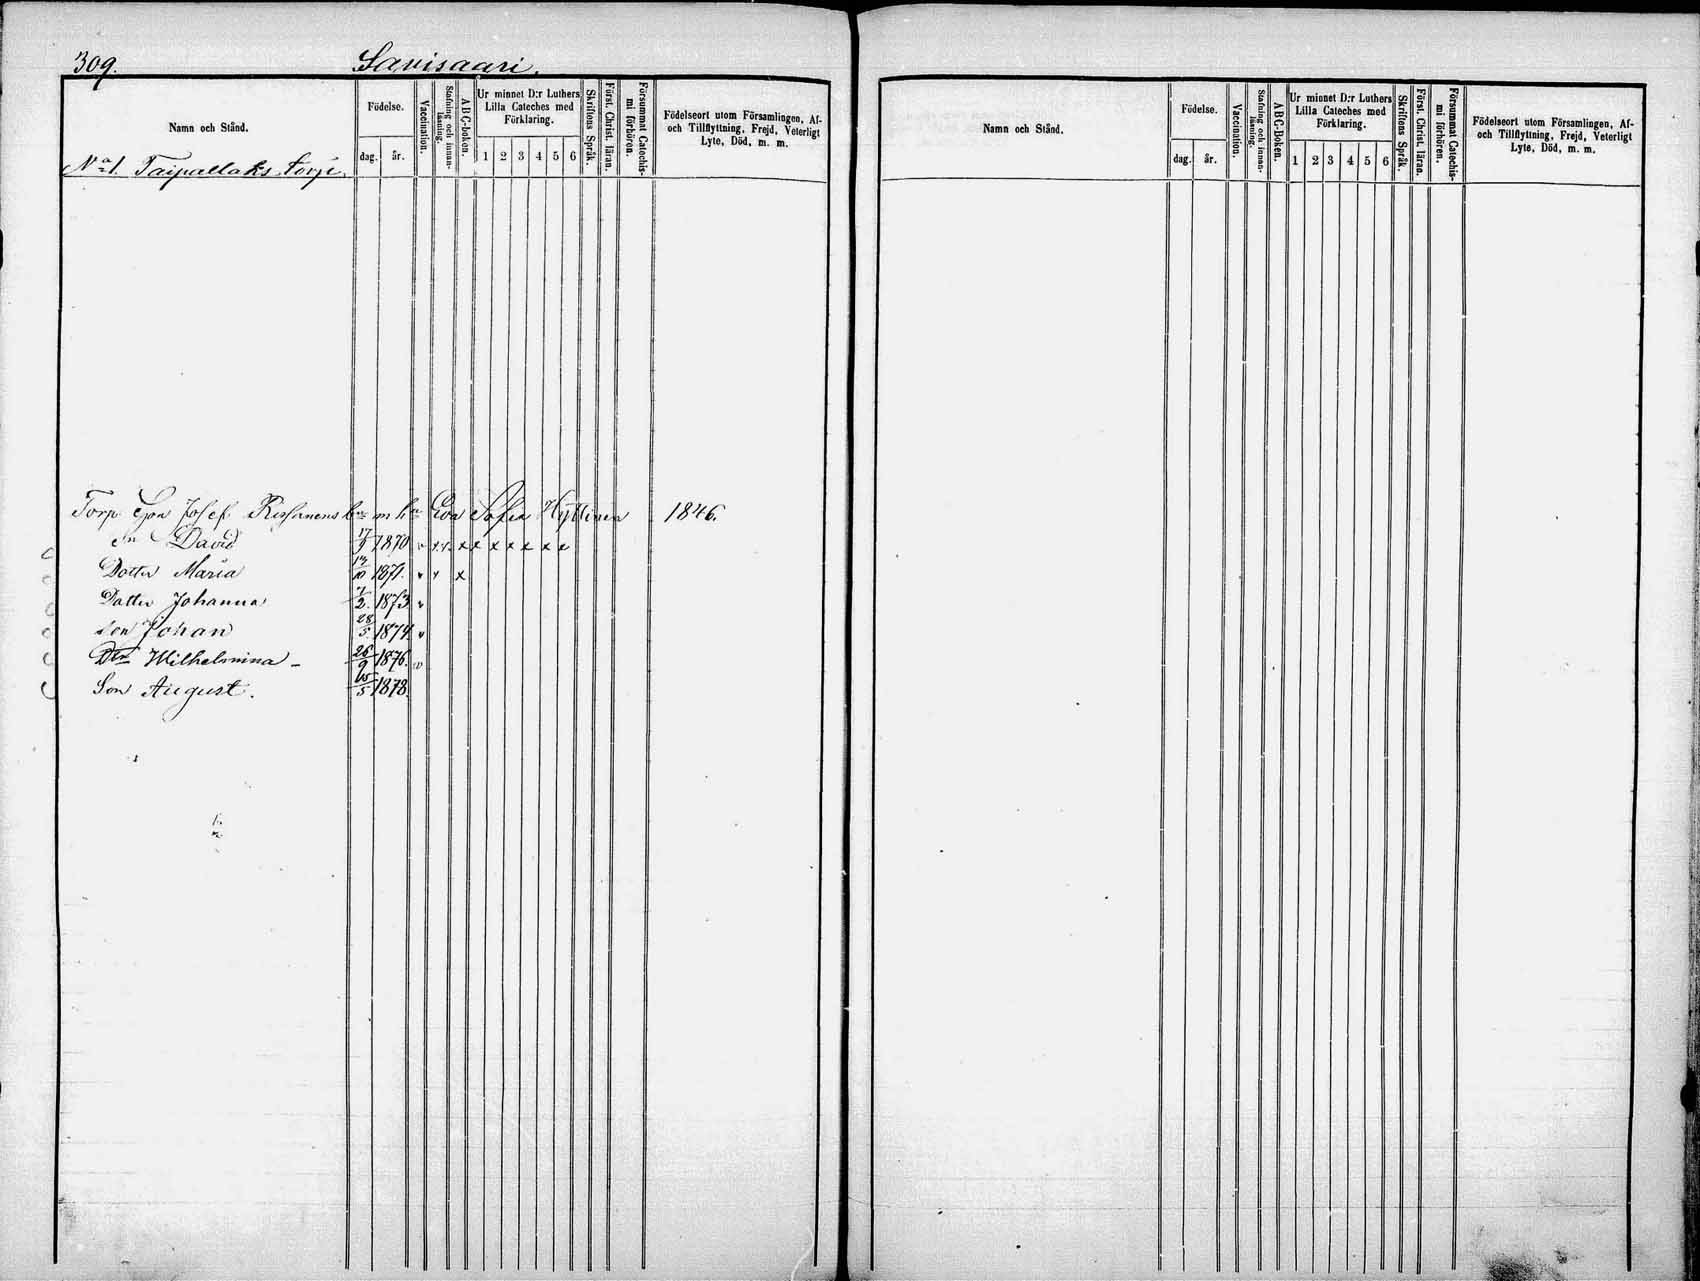 309. Savisaari.
Namn och Stånd.
Födelse.
dag. år.
Vaccination.
Stafning och innanläsning.
ABC-boken.
Ur minnet D:r Luthers Lilla Cateches med Förklaring.
1 2 3 4 5 6
Skriftens Språk.
Först. Christ. läran.
Försummat Catechismi förhören.
Födelseort utom Församlingen, Af- och Tillflyttning, Frejd, Veterligt Lyte, Död, m. m.
No 1. Taipallaks torp.
Torp Son Josef m h Eva Sofia Hyttinen 1846.
Sn David 17/9 1870 v x x x x x x x x
Dotter Maria 14/10 1871. v v x
Dotter Johanna 7/2. 1873 v
Son Johan 28/5. 1874 v
Dtr Wilhelmina - 26/9 1876. v
Son August. /5 1878.
Namn och Stånd.
Födelse.
dag. år.
Vaccination.
Stafning och innanläsning.
ABC-Boken.
Ur minnet D:r Luthers Lilla Cateches med Förklaring.
1 2 3 4 5 6
Skriftens Språk.
Först. Christ. läran.
Försummat Catechismi förhören.
Födelseort utom Församlingen, Af- och Tillflyttning, Frejd, Veterligt Lyte, Död, m. m.